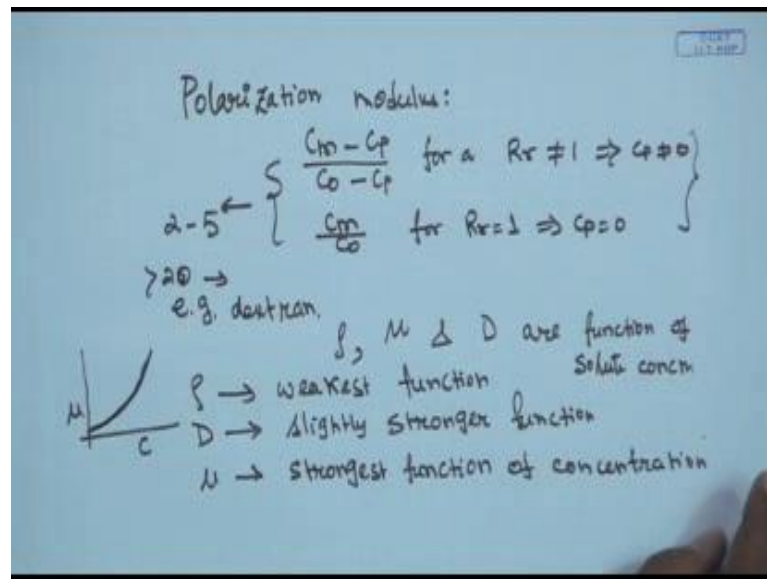 Polarization modulus:
Cm - Cp / Co - Cp for a Rr ≠ 1 ⇒ Cp ≠ 0
2-5 ← Cm / Co for Rr = 1 ⇒ Cp = 0
>20 →
e.g. dextran.
ρ, μ & D are function of
solute concn.
ρ → weakest function
μ
C
D → slightly stronger function
μ → strongest function of concentration